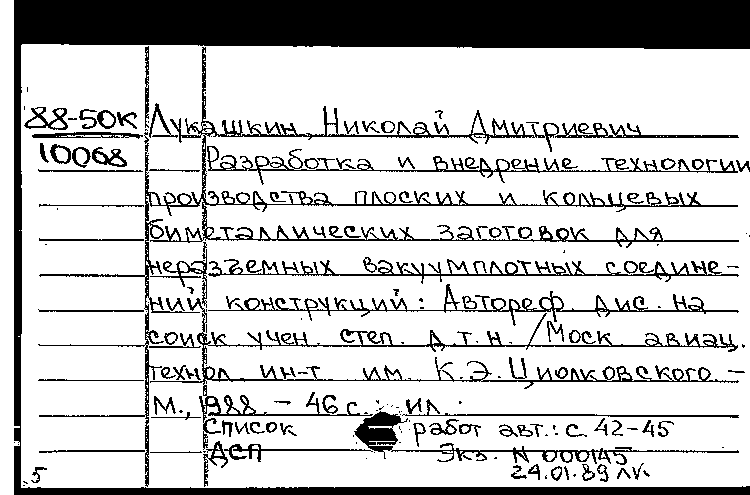 88-50К Лукашкин, Николай Дмитриевич
10068 Разработка и внедрение технологии
производства плоских и кольцевых
биметаллических заготовок для
неразъемных вакуумплотных соедине-
ний конструкций: Автореф. дис. на
соиск учен. степ. д.т.н. / Моск авиац.
технол. ин-т им. К.Э. Циолковского. –
М., 1988. – 46 с.: ил.
Список работ авт.: с. 42-45
ДСП Экз. N 000145
5 24.01.89 ЛК